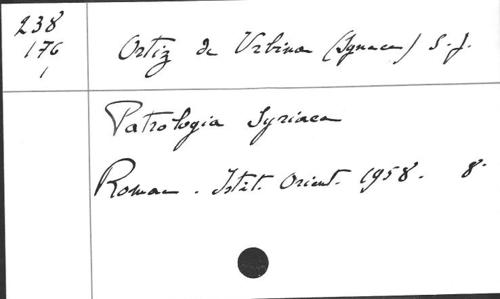 238
176
1
Ortiz de Urbina (Ignace) S.J.
Patrologia Syriaca
Romae. Istit. Orient. 1958. 8°